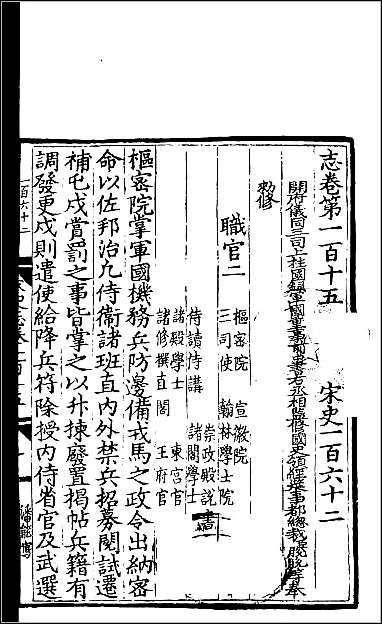 志卷第一百十五　宋史一百六十二
開府儀同三司上柱國錄軍國重事前中書右丞相監修國史領經筵事都總裁脫脫等奉
勑修
職官二
樞密院　宣徽院
三司使　翰林學士院
侍讀侍講　崇政殿說書
諸殿學士　諸閣學士
諸修撰直閣　東宮官
王府官
樞密院掌軍國機務兵防邊備戎馬之政令出納密
命以佐邦治凡侍衛諸班直內外禁兵招募閱試遷
補屯戍賞罰之事皆掌之以升揀廢置揭帖兵籍有
調發更戍則遣使給降兵符除授內侍省官及武選
一百六十二